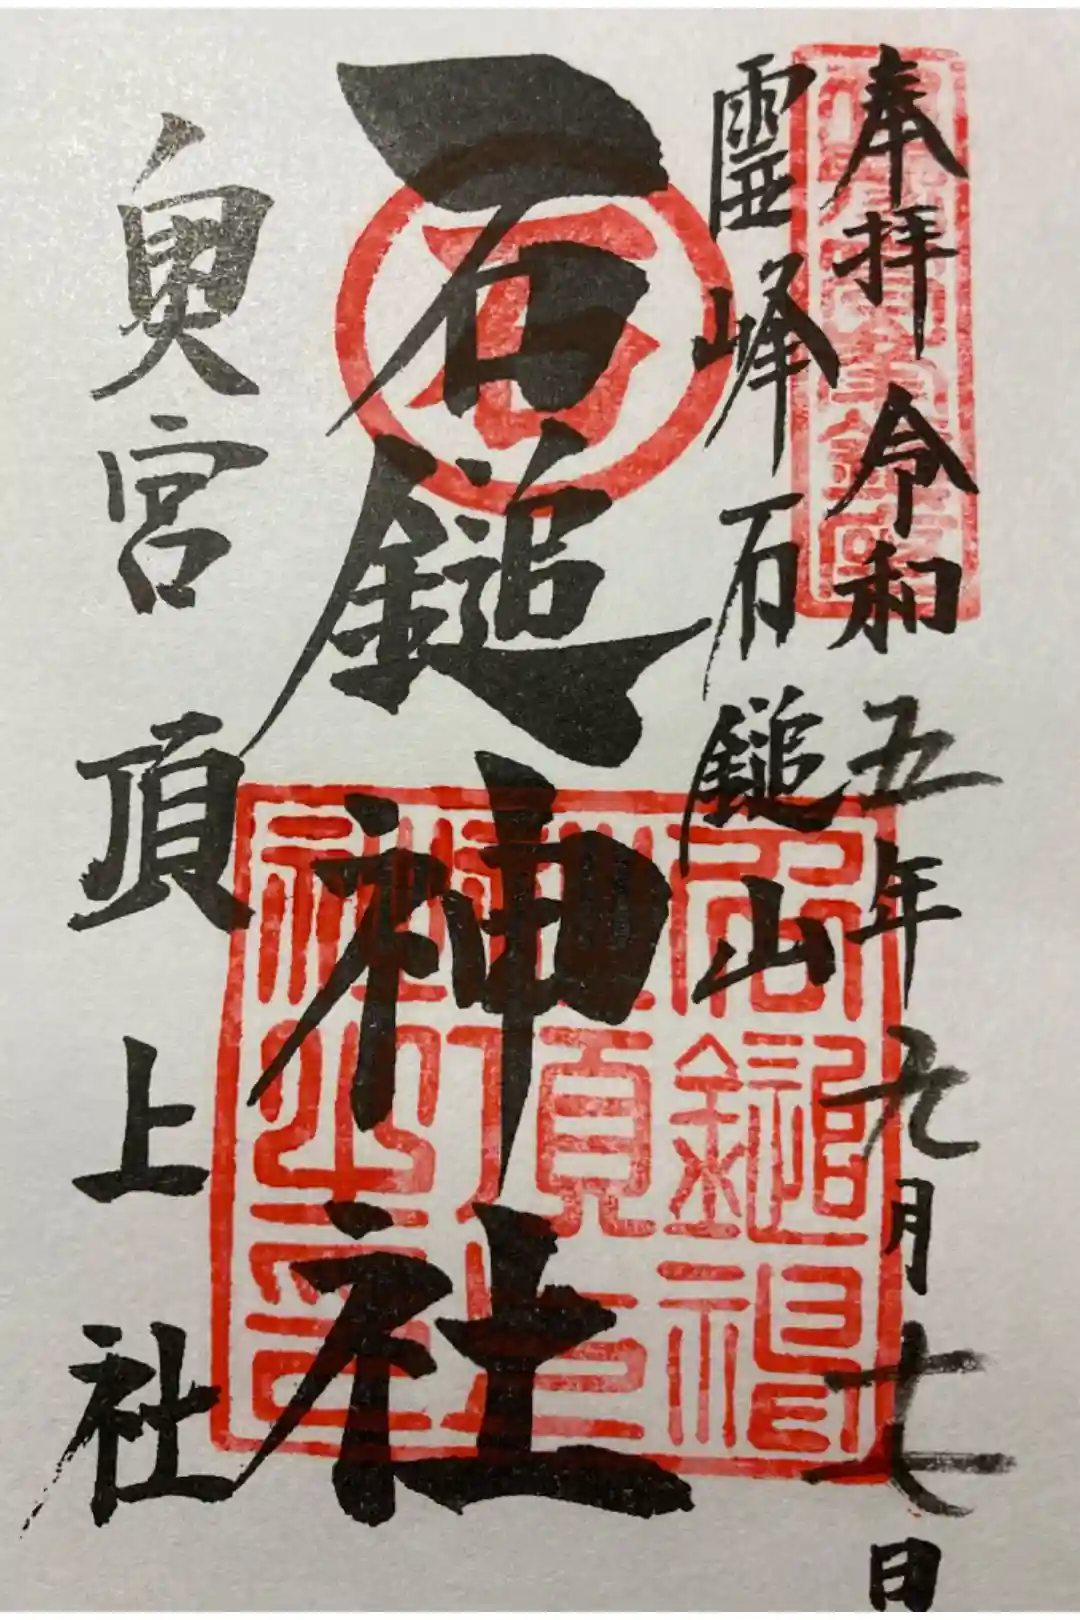 奉拝 令和五年九月十七日
霊峰石鎚山
石鎚神社
奥宮頂上社
石
石鎚神
社頂上
社之印